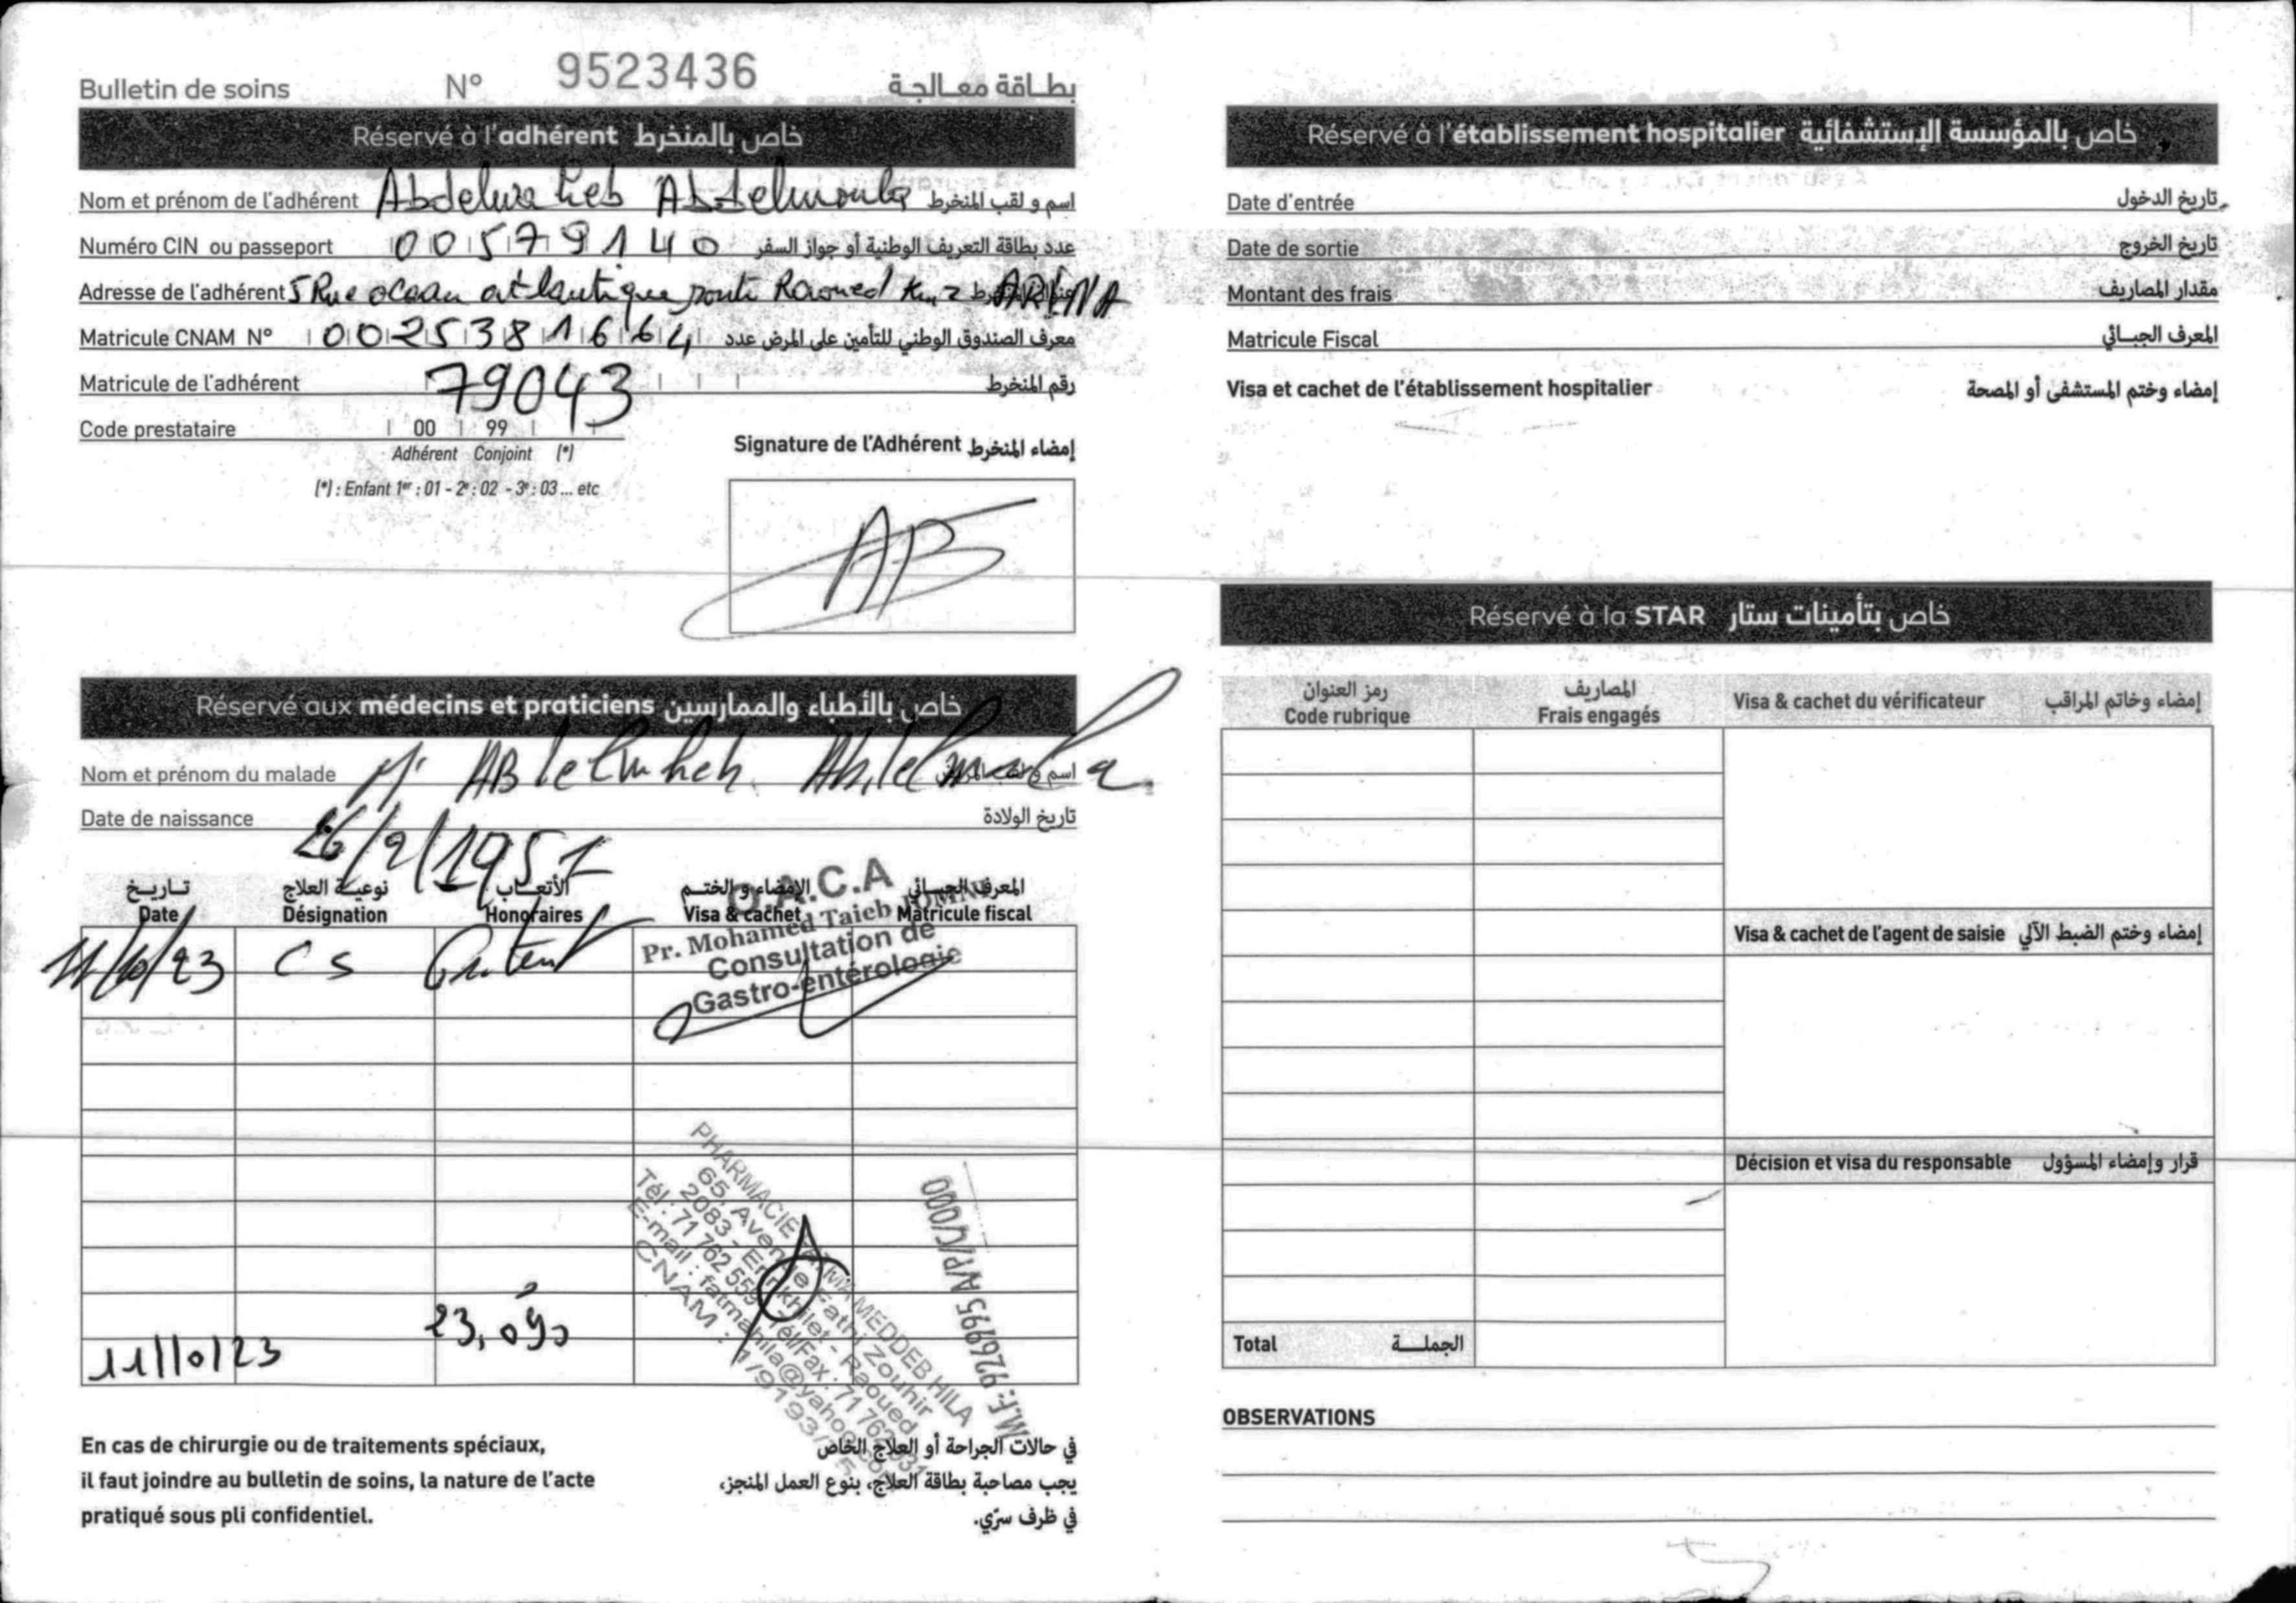 Bulletin de soins N° 9523436 بطاقة معالجة
Réservé à l'adhérent خاص بالمنخرط
Nom et prénom de l'adhérent Abdelwaheb Abdelmoula اسم و لقب المنخرط
Numéro CIN ou passeport 00579140 عدد بطاقة التعريف الوطنية أو جواز السفر
Adresse de l'adhérent 5 Rue ocean atlantique route Raoued Km 2 ARIANA
Matricule CNAM N° 002538166 4 معرف الصندوق الوطني للتأمين على المرض عدد
Matricule de l'adhérent 79043 رقم المنخرط
Code prestataire 00 99
Adhérent Conjoint (*)
(*) : Enfant 1er : 01 - 2e : 02 - 3e : 03 ... etc
Signature de l'Adhérent إمضاء المنخرط
AB
Réservé aux médecins et praticiens خاص بالأطباء والممارسين
Nom et prénom du malade Mr ABdelwaheb Abdelmoula
Date de naissance 26/2/1957 تاريخ الولادة
تاريخ نوعية العلاج الأتعاب الإمضاء و الختم المعرف الجبائي
Date Désignation Honoraires Visa & cachet Matricule fiscal
11/10/23 CS
O.A.C.A
Pr. Mohamed Taieb JOMNI
Consultation de
Gastro-entérologie
PHARMACIE FATMA MEDDEB HILA
65, Avenue Fathi Zouhir
2083 - Ennkhilet - Raoued
Tél : 71 762 559 - Tél/Fax : 71 762
E-mail : fatmahila@yahoo
CNAM :
M.F: 926995 N/P/C/000
11/10/23 23,090
En cas de chirurgie ou de traitements spéciaux,
il faut joindre au bulletin de soins, la nature de l'acte
pratiqué sous pli confidentiel.
في حالات الجراحة أو العلاج الخاص
يجب مصاحبة بطاقة العلاج، بنوع العمل المنجز،
في ظرف سرّي.
Réservé à l'établissement hospitalier خاص بالمؤسسة الإستشفائية
Date d'entrée تاريخ الدخول
Date de sortie تاريخ الخروج
Montant des frais مقدار المصاريف
Matricule Fiscal المعرف الجبائي
Visa et cachet de l'établissement hospitalier إمضاء وختم المستشفى أو المصحة
Réservé à la STAR خاص بتأمينات ستار
رمز العنوان المصاريف
Code rubrique Frais engagés Visa & cachet du vérificateur إمضاء وخاتم المراقب
Visa & cachet de l'agent de saisie إمضاء وختم الضبط الآلي
Décision et visa du responsable قرار وإمضاء المسؤول
Total الجملة
OBSERVATIONS